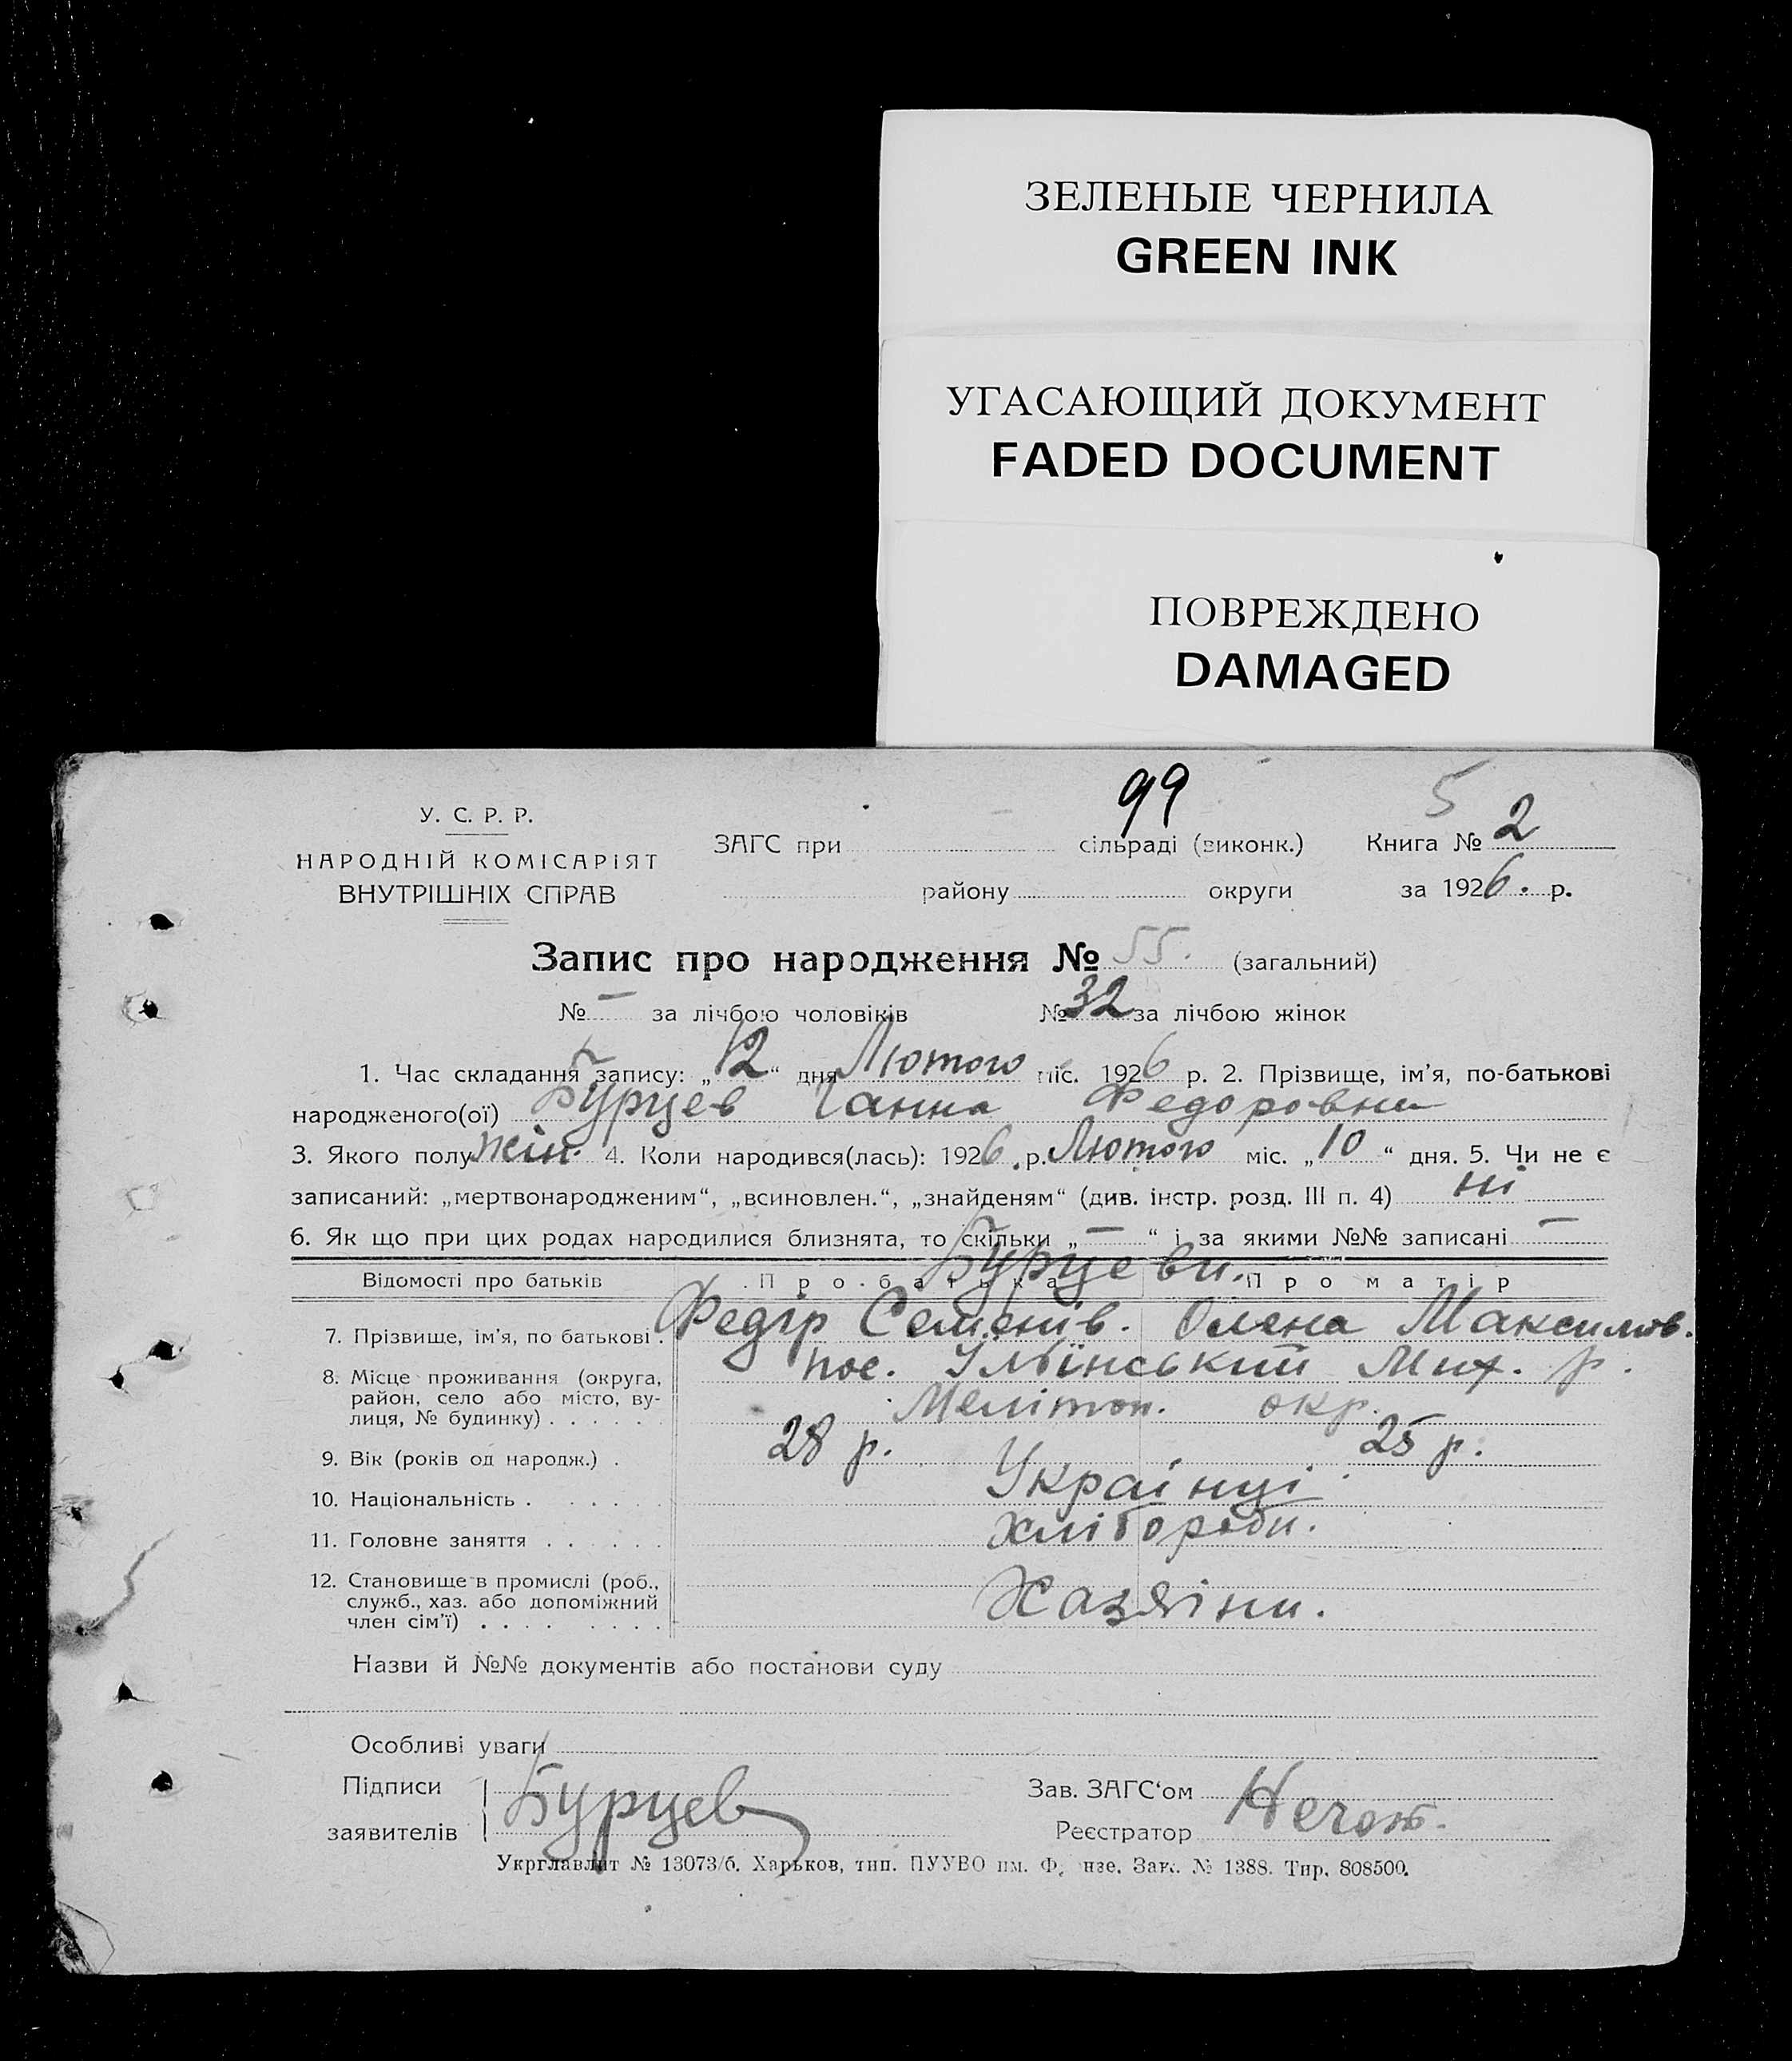 ЗЕЛЕНЫЕ ЧЕРНИЛА
GREEN INK
УГАСАЮЩИЙ ДОКУМЕНТ
FADED DOCUMENT
ПОВРЕЖДЕНО
DAMAGED
99 5
У. С. Р. Р.
НАРОДНІЙ КОМІСАРІЯТ
ВНУТРІШНІХ СПРАВ
ЗАГС при сільраді (виконк.) Книга № 2
району округи за 1926. р.
Запис про народження № 55. (загальний)
№ — за лічбою чоловіків № 32 за лічбою жінок
1. Час складання запису: „12“ дня Лютого міс. 1926 р. 2. Прізвище, ім’я, по-батькові
народженого(ої) Бурцев Ганна Федоровна
3. Якого полу жін. 4. Коли народився(лась): 1926. р. Лютого міс. „10“ дня. 5. Чи не є
записаний: „мертвонародженим“, „всиновлен.“, „знайденям“ (див. інстр. розд. III п. 4) ні
6. Як що при цих родах народилися близнята, то скільки „—“ і за якими №№ записані —
Відомості про батьків Про батька Про матір
Бурцеви.
7. Прізвище, ім’я, по батькові. Федір Семенів. Олена Максимов.
8. Місце проживання (округа, район, село або місто, вулиця, № будинку) . . . . . . пос. Мих. р.
Меліт окр.
9. Вік (років од народж.) . 28 р. 25 р.
10. Національність . . . . . . Українці
11. Головне заняття . . . . . . Хлібороби.
12. Становище в промислі (роб., служб., хаз. або допоміжний член сім’ї) . . . . . . . . Хазяіни.
Назви й №№ документів або постанови суду
Особливі уваги
Підписи
заявителів Бурцев
Зав. ЗАГС‘ом
Реєстратор
Укрглавлит № 13073/б. Харьков, тип. ПУУВО им. Ф нзе. Зак. № 1388. Тир. 808500.